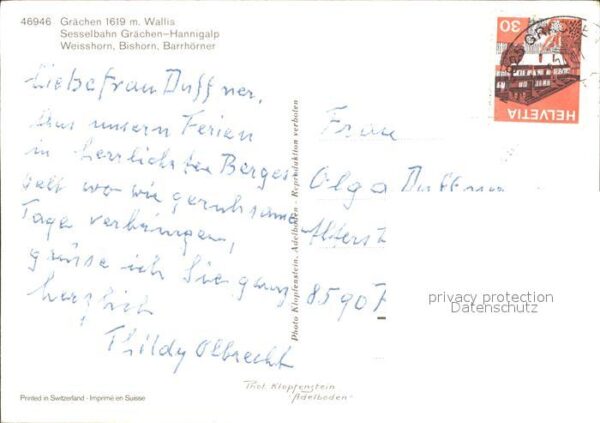 46946 Grächen 1619 m. Wallis
Sesselbahn Grächen-Hannigalp
Weisshorn, Bishorn, Barrhörner
Liebe Frau Duffner,
Aus unsern Ferien
in herrlichster Berges
welt wo wir geruhsame
Tage verbringen,
grüsse ich Sie ganz
herzlich
Thildy Olbrecht
Printed in Switzerland - Imprimé en Suisse
Photo Klopfenstein, Adelboden - Reproduktion verboten
Phot. Klopfenstein
"Adelboden"
30
HELVETIA
Frau
Olga Duffner
8590
privacy protection
Datenschutz